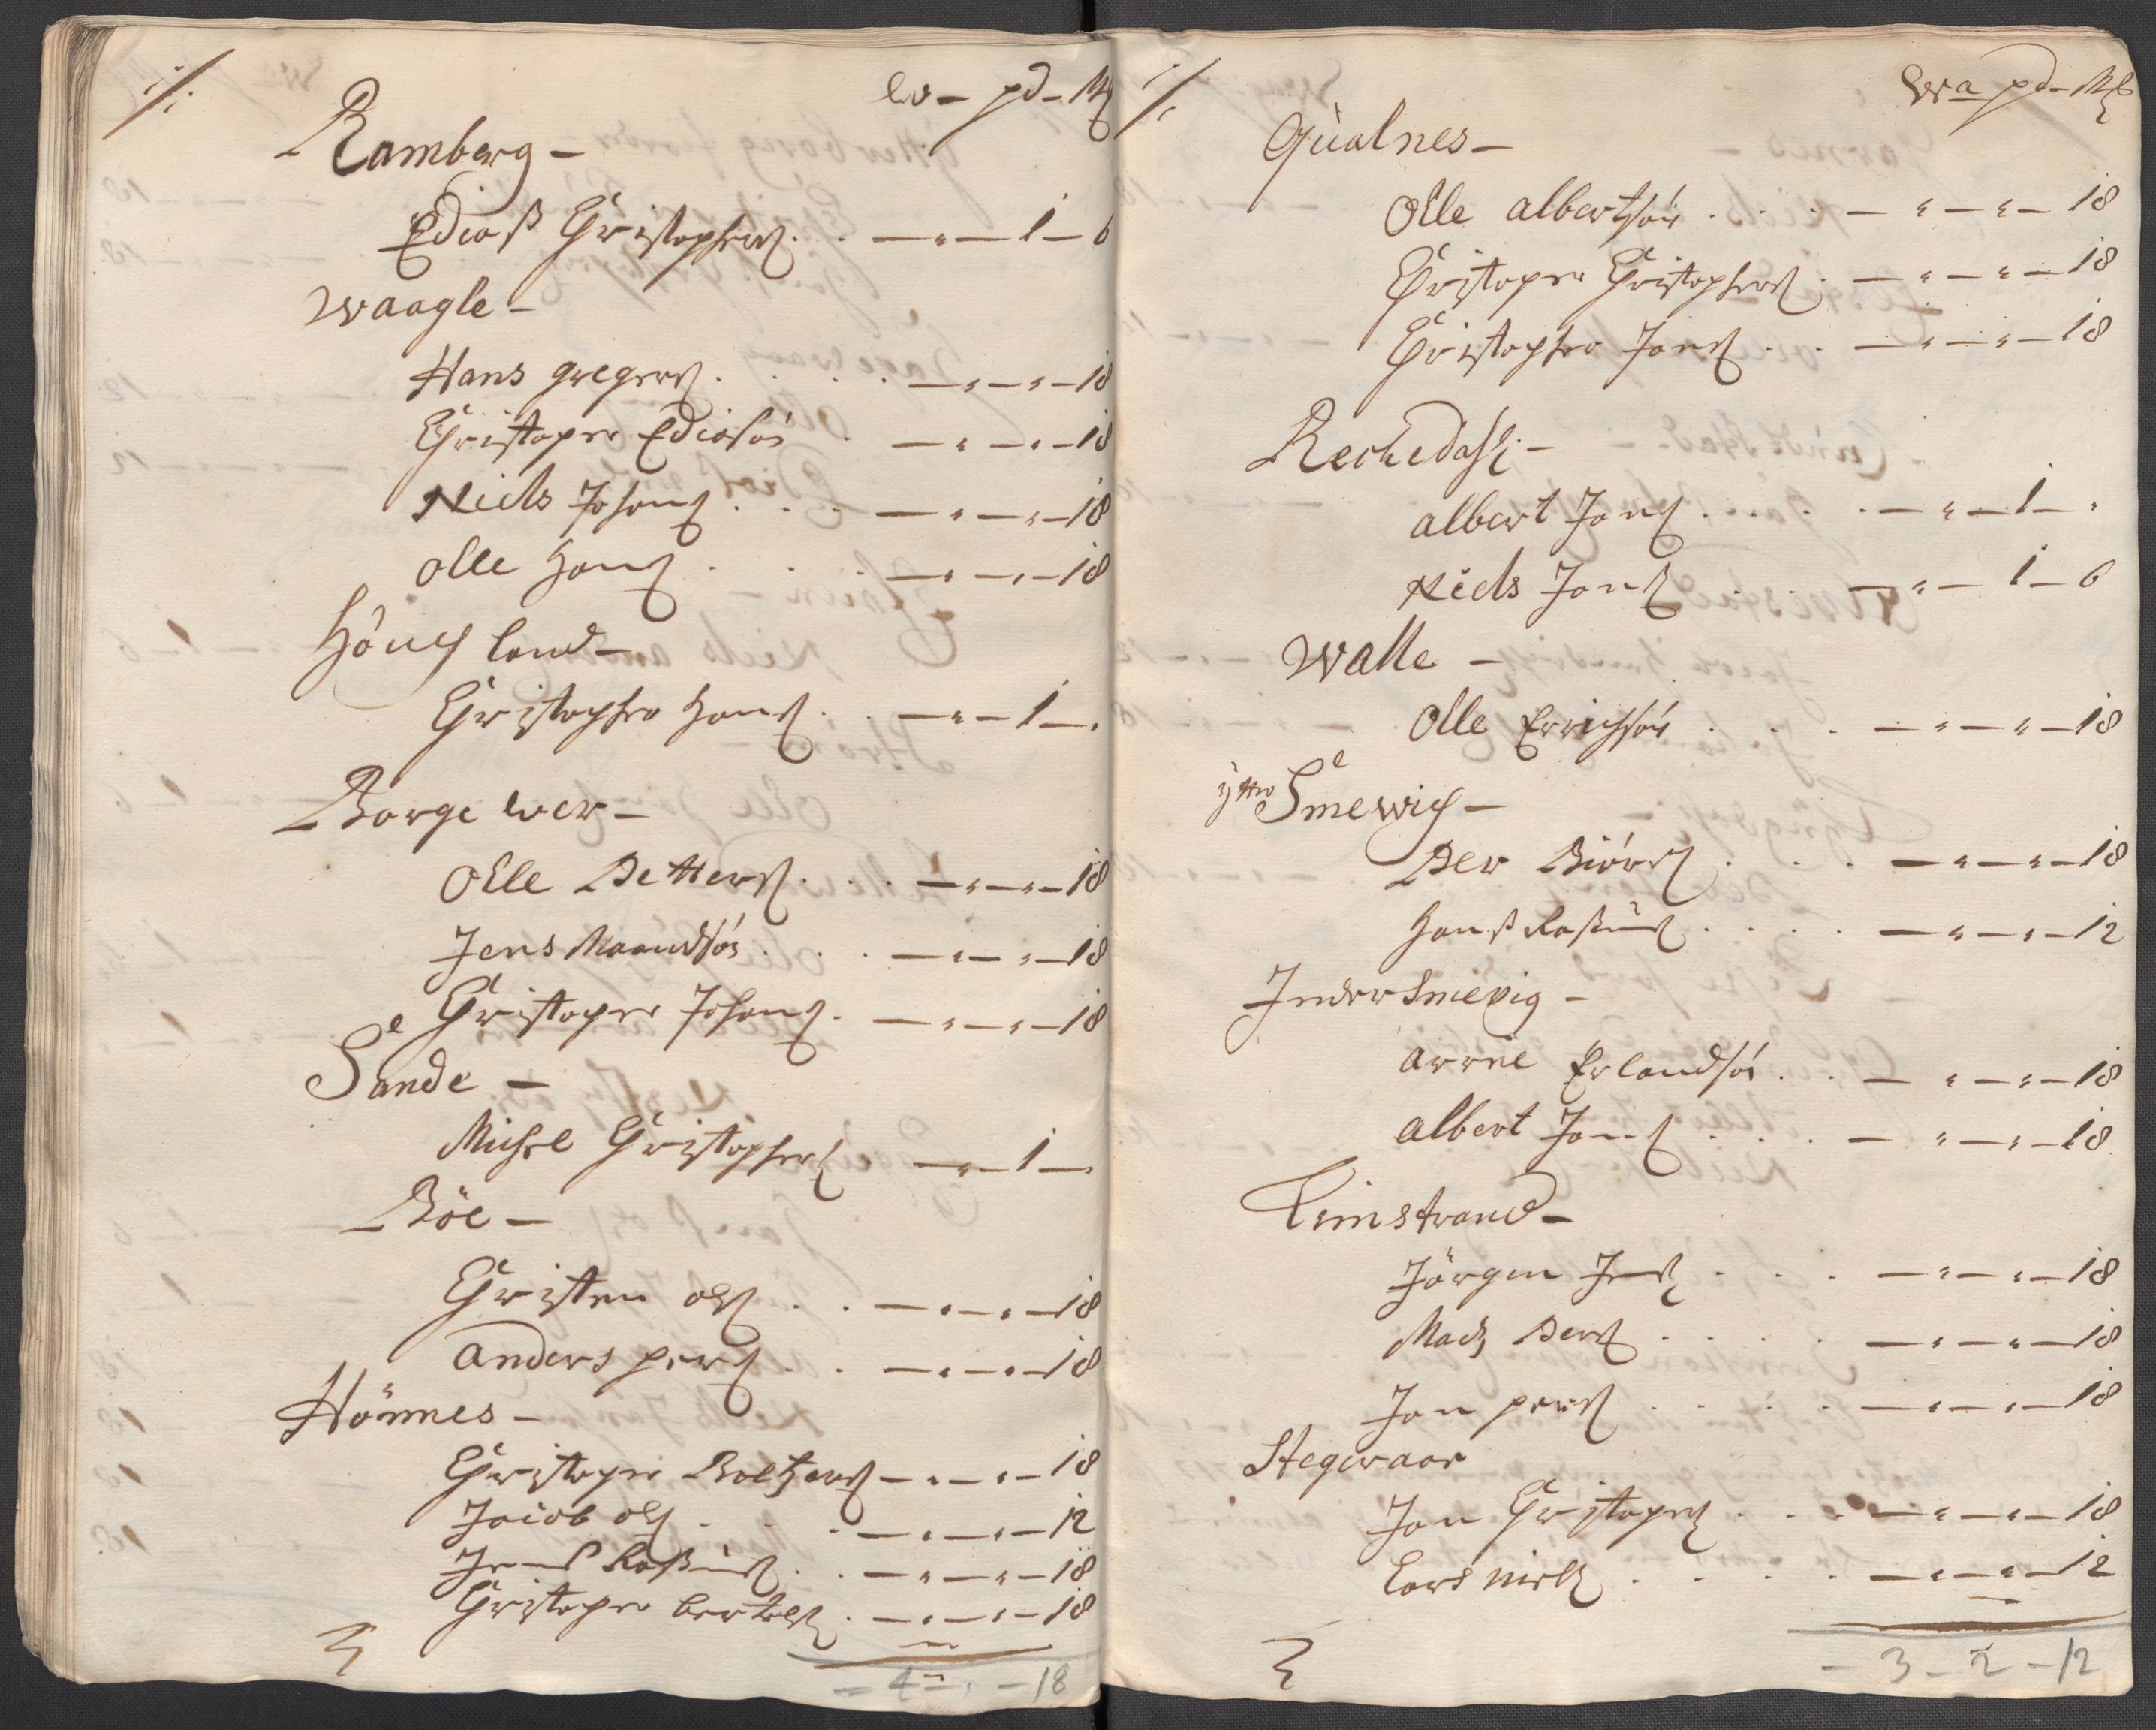 ./.
W - pd - M
Ramberg -
Edias Christophers . . — " — 1 — 6
Waagle -
Hans gregers . . . . — " — " — 18
Christoper Ediasön . — " — " — 18
Niels Johans . . . — " — " — 18
Olle Hans . . . — " — " — 18
Höuf land -
Christopher Hans . . — " — 1 — "
Borge wer -
Olle Petters . . . — " — " — 18
Jens Maandsön . . . — " — " — 18
Christoper Johans . — " — " — 18
Sande -
Michel Christophers . — " — 1 — "
Böe -
Christen ols . . — " — " — 18
Anders pers . . — " — " — 18
Hönnes -
Christoper Boltzers — " — " — 18
Jacob ols . . . — " — " — 12
Jens Rasmus . . — " — " — 18
Christoper bertels . — " — " — 18
- 4 - " - 18
./.
Wa pd - M
Qualnes -
Olle albertsön . . . — " — " — 18
Christoper Christophers . — " — " — 18
Christopher Jons . . — " — " — 18
Rechedahl -
albert Jons . . . . — " — 1 — "
Niels Jons . . . — " — 1 — 6
Walle -
Olle Errichsön . . . — " — " — 18
ytter Smewig -
Per Biörs . . . — " — " — 18
Hans Rasmus . . . . — " — " — 12
Inder Smevig -
arrne Erlandsön . . — " — " — 18
albert Jons . . . — " — " — 18
Limstrand -
Jörgen Jens . . . — " — " — 18
Mads Pers . . . . — " — " — 18
Jon pers . . . . — " — " — 18
Stegwaar
Jon Christopers . . . — " — " — 18
Lars niels . . . . — " — " — 12
- 3 - 2 - 12